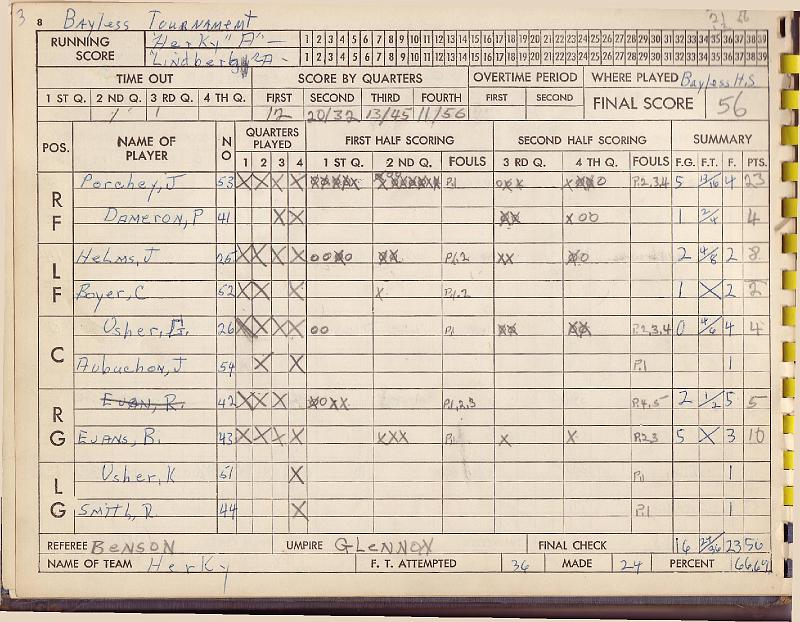 3 8 Bayless Tournament
RUNNING SCORE
"Herky" A" - 1 2 3 4 5 6 7 8 9 10 11 12 13 14 15 16 17 18 19 20 21 22 23 24 25 26 27 28 29 30 31 32 33 34 35 36 37 38 39
"Lindbergh" "A - 1 2 3 4 5 6 7 8 9 10 11 12 13 14 15 16 17 18 19 20 21 22 23 24 25 26 27 28 29 30 31 32 33 34 35 36 37 38 39
TIME OUT SCORE BY QUARTERS OVERTIME PERIOD WHERE PLAYED Bayless H.S.
1 ST Q. 2 ND Q. 3 RD Q. 4 TH Q. FIRST SECOND THIRD FOURTH FIRST SECOND FINAL SCORE 56
12 20/32 13/45 11/56
POS. NAME OF PLAYER NO QUARTERS PLAYED FIRST HALF SCORING SECOND HALF SCORING SUMMARY
1 2 3 4 1 ST Q. 2 ND Q. FOULS 3 RD Q. 4 TH Q. FOULS F.G. F.T. F. PTS.
RF Porchey, J 53 X X X X P.1 P.2,3,4 5 13/16 4 23
Dameron, P 41 X X X00 1 2/4 4
LF Helms, J 25 X X X X P.1,2 XX 2 4/8 2 8
Boyer, C 52 X X X X P.1,2 1 X 2 2
C Usher, G. 26 X X X X 00 P.1 P.2,3,4 0 4/6 4 4
Aubuchon, J 54 X X P.1 1
RG Evan, R. 42 X X X P.1,2,3 P.4,5 2 1/2 5 5
Evans, B. 43 X X X X XXX P.1 X X P.2,3 5 X 3 10
LG Usher, K 51 X P.1 1
Smith, R 44 X P.1 1
REFEREE Benson UMPIRE Glennon FINAL CHECK 16 24/36 23 56
NAME OF TEAM Herky F. T. ATTEMPTED 36 MADE 24 PERCENT 66.67